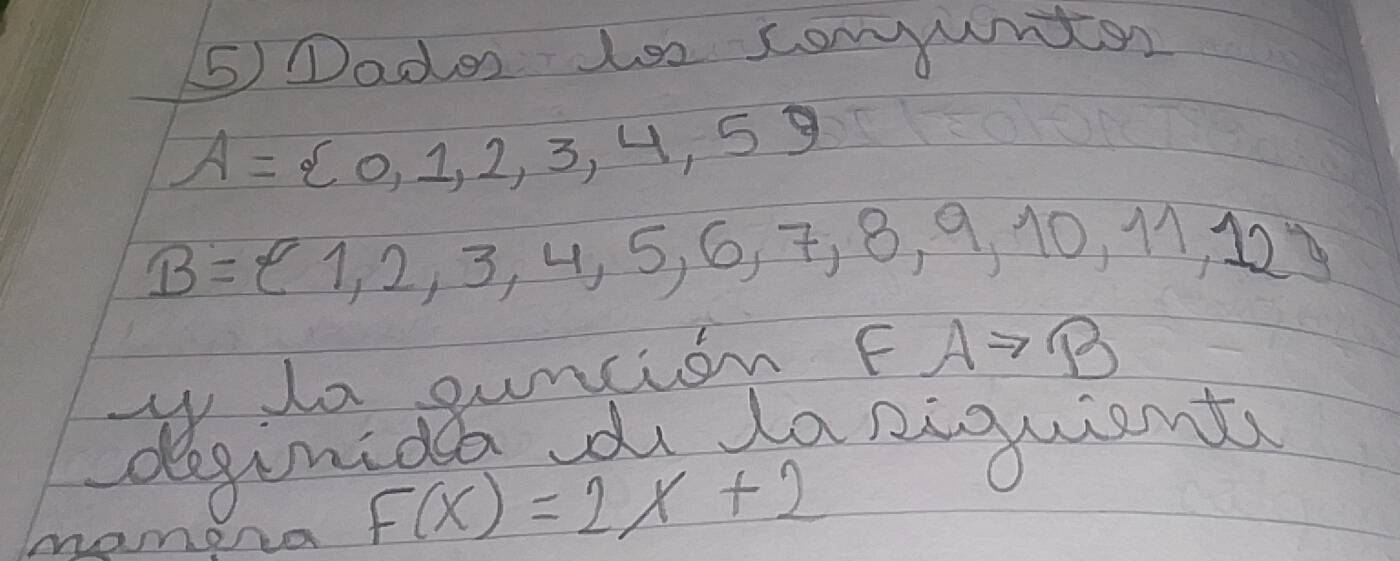 5) Dados los conjuntos
A = { 0, 1, 2, 3, 4, 5 }
B = { 1, 2, 3, 4, 5, 6, 7, 8, 9, 10, 11, 12 }
y la función F A → B
definida de la siguiente
manera F(X) = 2X + 2